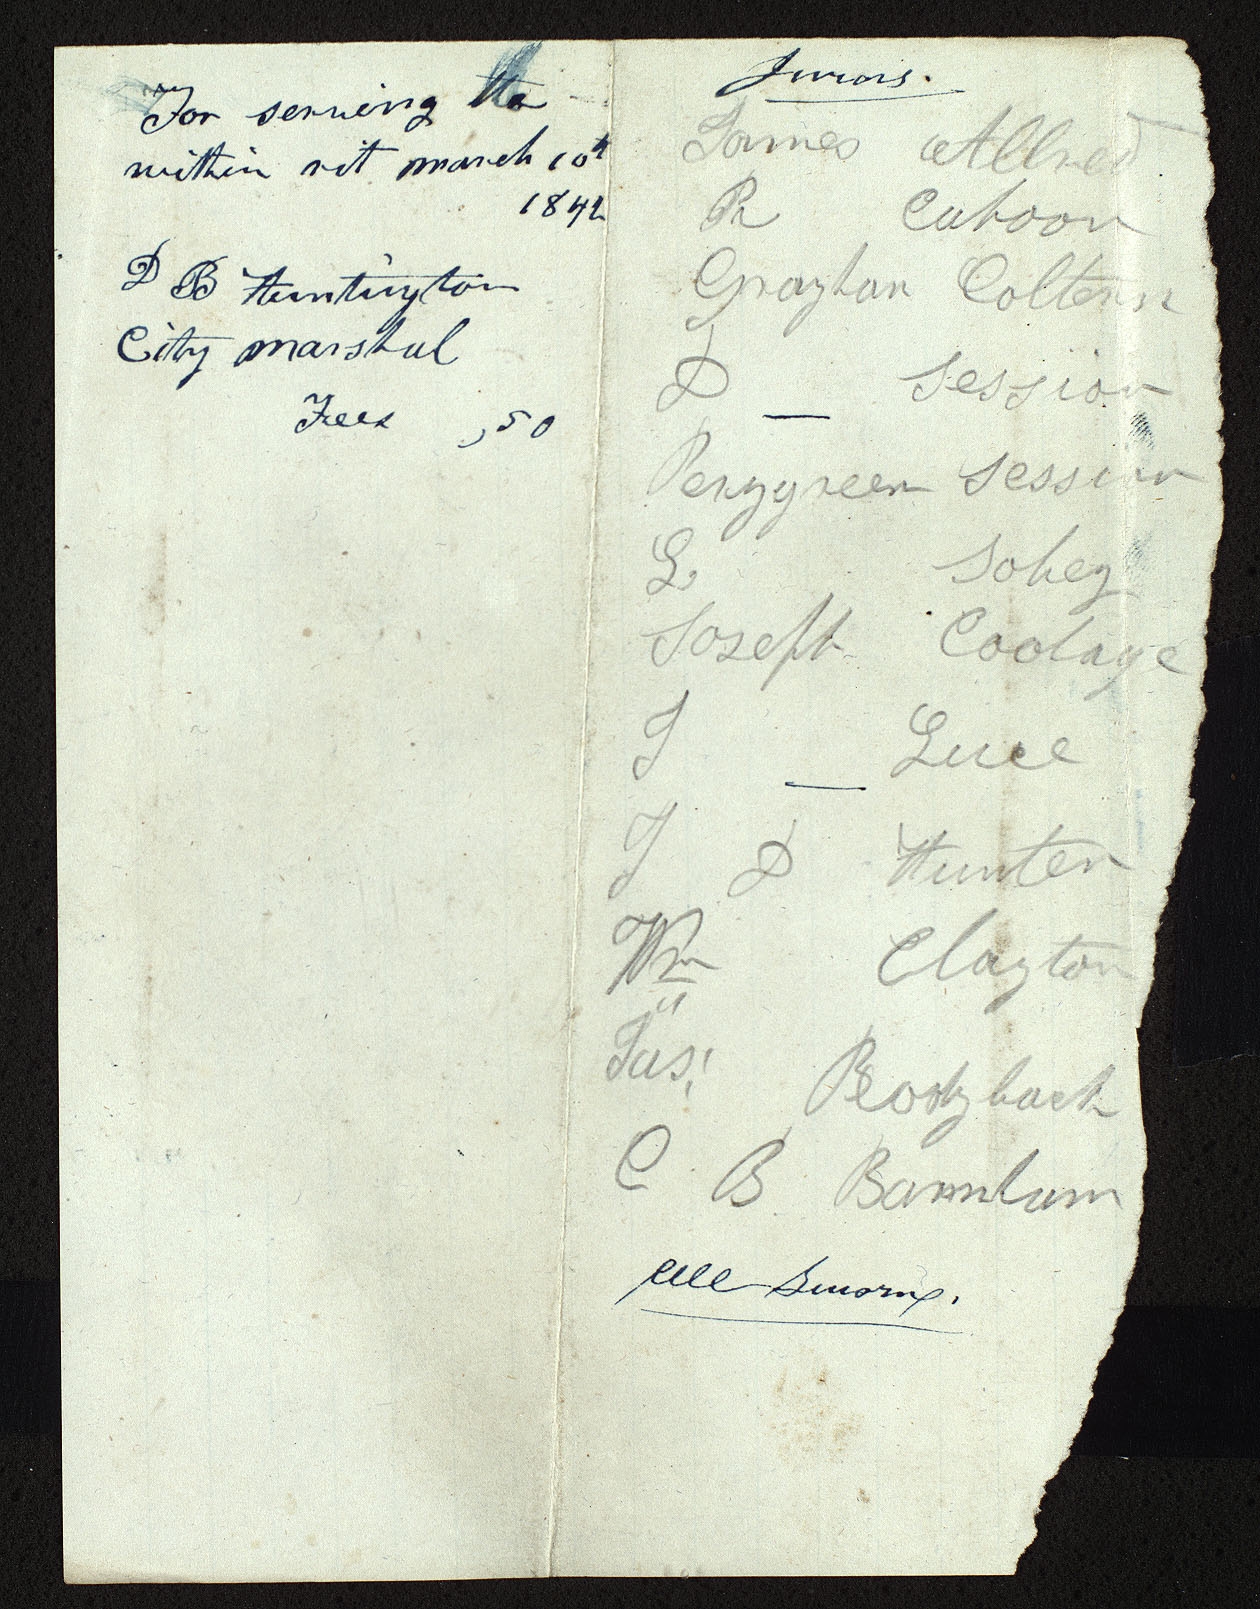 For serving the
within rit march 10th
1842
D B Huntington
City marshal
Fees ,50
Jurors.
James Allred
R Cahoon
Graphan Coltern
D — Session
Perzygreen Session
L Sohey
Joseph Coolage
J — Luce
J D Hunter
Wm Clayton
Jas! Bodyback
C B Barnham
All Sworn.